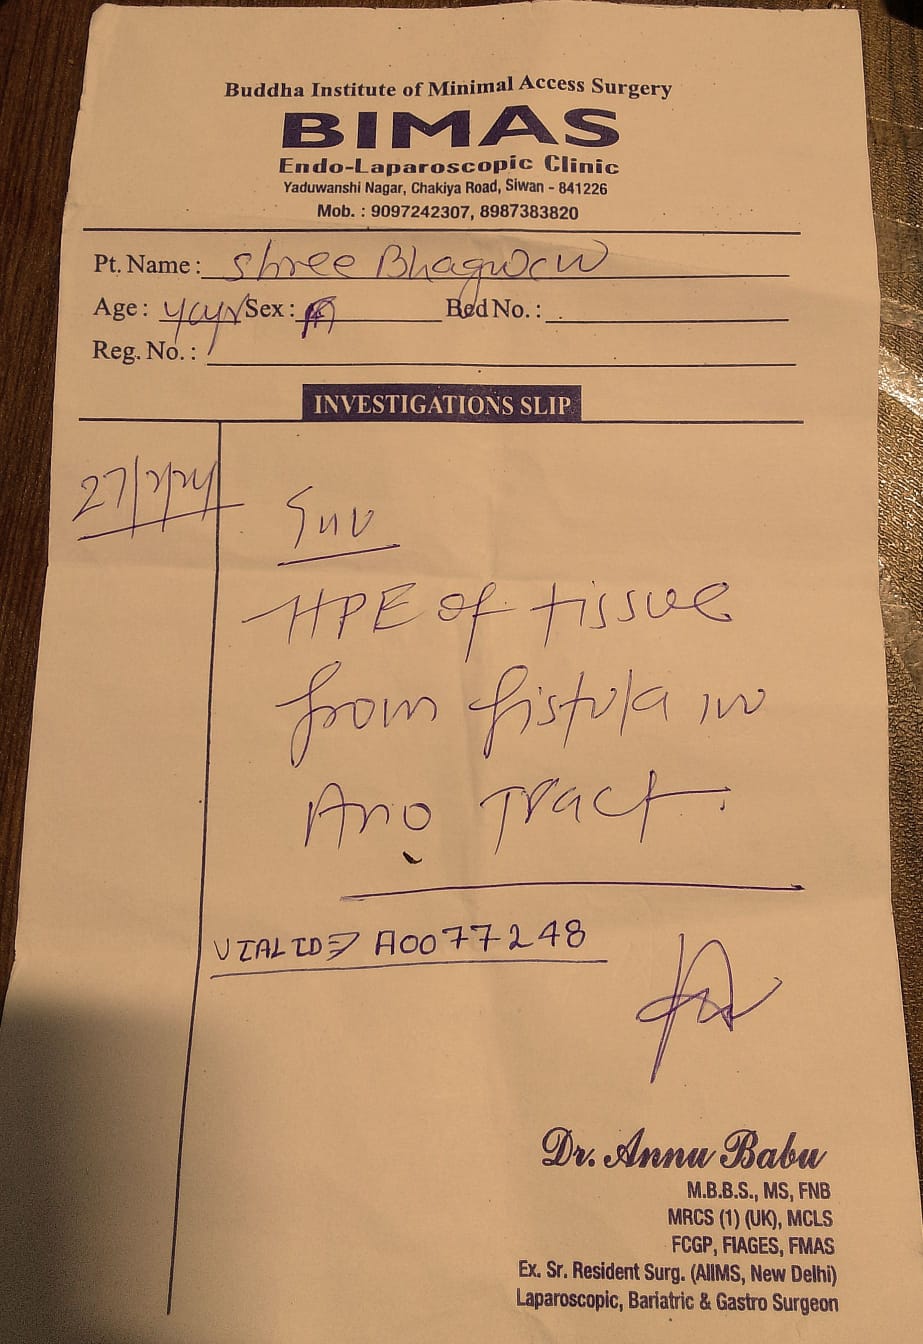 Buddha Institute of Minimal Access Surgery
BIMAS
Endo-Laparoscopic Clinic
Yaduwanshi Nagar, Chakiya Road, Siwan - 841226
Mob. : 9097242307, 8987383820
Pt. Name : Shree Bhagwan
Age : Sex : Bed No. :
Reg. No. :
INVESTIGATIONS SLIP
HPE of tissue
from fistula in
Ano Tract.
VIALID⇒ A0077248
Dr. Annu Babu
M.B.B.S., MS, FNB
MRCS (1) (UK), MCLS
FCGP, FIAGES, FMAS
Ex. Sr. Resident Surg. (AIIMS, New Delhi)
Laparoscopic, Bariatric & Gastro Surgeon